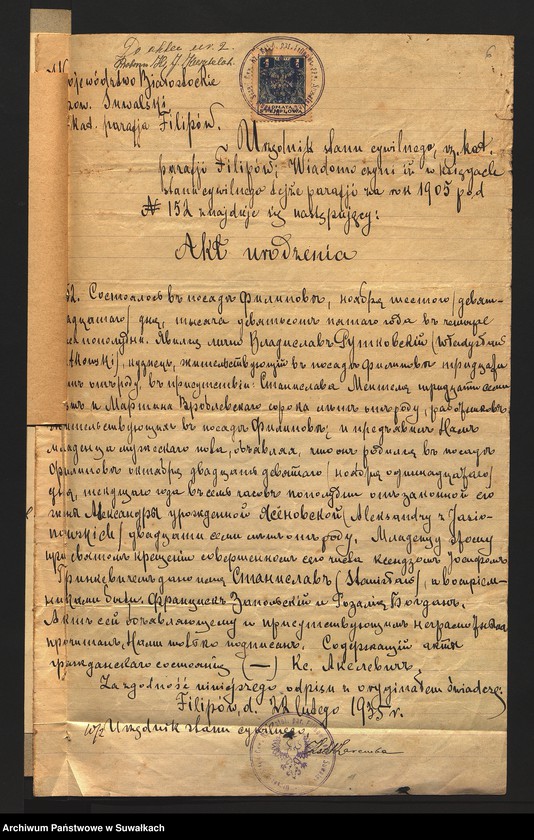 Do aktu nr. 2.
Województwo Białostockie
pow. Suwalski
kat. parafja Filipów.
Urzędnik stanu cywilnego, rz. kat.
parafji Filipów, Wiadomo czyni iż w księgach
stanu cywilnego tejże parafji za rok 1905 pod
№ 152 znajduje się następujący:
Akt urodzenia
52. Состоялось въ посадѣ Филиповѣ, ноября шестого /девят-
надцатаго/ дня, тысяча девятьсотъ пятаго года въ четыре
часа пополудни. Явился лично Владиславъ Рутковскiй (Władysław
tkowski), кузнецъ, жительствующiй въ посадѣ Филиповѣ тридцати
лѣтъ отъ роду, въ присутствiи: Станислава Ментеля тридцати семи
лѣтъ и Мартина Врублевскаго сорока лѣтъ отъ роду, работниковъ,
жительствующихъ въ посадѣ Филиповѣ; и предъявилъ Намъ
младенца мужескаго пола, объявляя, что онъ родился въ посадѣ
Филиповѣ октября двадцать девятаго /ноября одиннадцатаго/
дня, текущаго года въ семь часовъ пополудни отъ законной его
жены Александры урожденной Ясеновской (Aleksandry z Jasio-
nowskich) двадцати семи лѣтъ отъ роду. Младенцу этому
при святомъ крещенiи совершенномъ сего числа ксендзомъ
Гринкевичемъ дано имя Станиславъ (Stanisław), и воспрiем-
никами были Францискъ Запольскiй и Розалiя Богданъ.
Актъ сей объявляющему и присутствующимъ неграмотнымъ
прочитанъ, Нами только подписанъ. Содержащiй акты
гражданскаго состоянiя (—) Кс. Акелевичъ.
Za zgodność niniejszego odpisu z oryginałem świadczę.
Filipów, d. lutego 1935 r.
Urzędnik stanu cywilnego
Archiwum Państwowe w Suwałkach